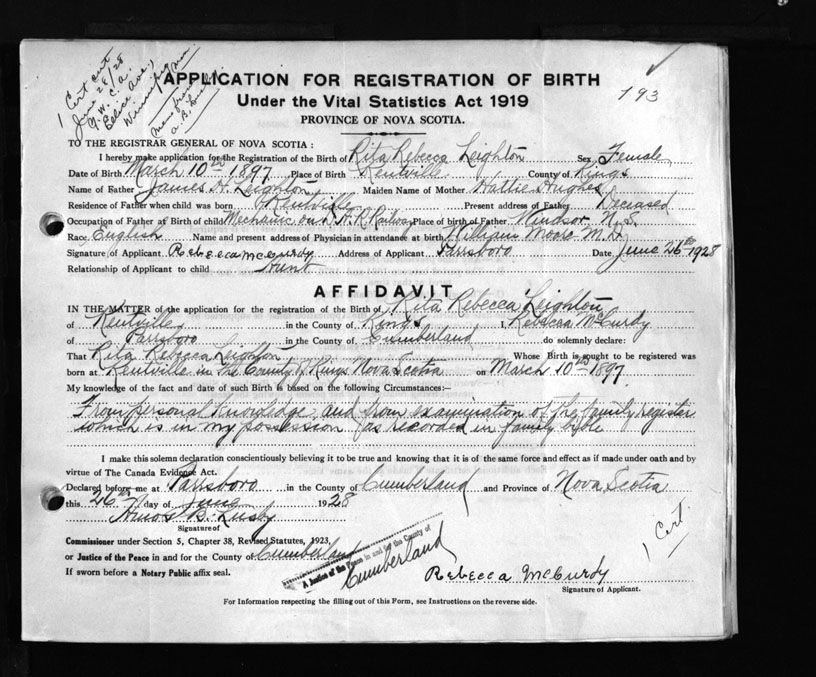 1 Cert sent
June 28/28
Y. W. C. A.
Ellice Ave,
Winnipeg Man
A. B. Lusby
193
APPLICATION FOR REGISTRATION OF BIRTH
Under the Vital Statistics Act 1919
PROVINCE OF NOVA SCOTIA.
TO THE REGISTRAR GENERAL OF NOVA SCOTIA:
I hereby make application for the Registration of the Birth of Rita Rebecca Leighton Sex Female
Date of Birth March 10th 1897 Place of Birth Kentville County of Kings
Name of Father James H. Leighton Maiden Name of Mother Hattie Hughes
Residence of Father when child was born Kentville Present address of Father Deceased
Occupation of Father at Birth of child Mechanic on D. A. R. Railway Place of birth of Father Windsor N. S.
Race English Name and present address of Physician in attendance at birth William Moore M. D.
Signature of Applicant Rebecca McCurdy Address of Applicant Parrsboro Date June 26th 1928
Relationship of Applicant to child Aunt
AFFIDAVIT
IN THE MATTER of the application for the registration of the Birth of Rita Rebecca Leighton
of Kentville in the County of Kings I, Rebecca McCurdy
of Parrsboro in the County of Cumberland do solemnly declare:
That Rita Rebecca Leighton Whose Birth is sought to be registered was
born at Kentville in the County of Kings Nova Scotia on March 10th 1897.
My knowledge of the fact and date of such Birth is based on the following Circumstances:—
From personal knowledge, and from examination of the family register
which is in my possession (as recorded in family bible
I make this solemn declaration conscientiously believing it to be true and knowing that it is of the same force and effect as if made under oath and by
virtue of The Canada Evidence Act.
Declared before me at Parrsboro in the County of Cumberland and Province of Nova Scotia
this 26th day of June 1928
Amos B. Lusby
Signature of
Commissioner under Section 5, Chapter 38, Revised Statutes, 1923,
or Justice of the Peace in and for the County of Cumberland
If sworn before a Notary Public affix seal.
A Justice of the Peace in and for the County of
Cumberland
1 Cert.
Rebecca McCurdy
Signature of Applicant.
For Information respecting the filling out of this Form, see Instructions on the reverse side.